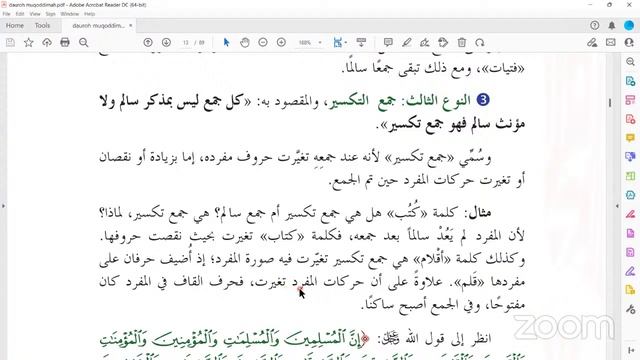 dauroh muqoddimah.pdf - Adobe Acrobat Reader DC (64-bit)
Home Tools dauroh muqoddimah...
13 / 89 168%
«فتيات»، ومع ذلك تبقى جمعًا سالمًا.
3 النوع الثالث: جمع التكسير، والمقصود به: «كل جمع ليس بمذكر سالم ولا
مؤنث سالم فهو جمع تكسير».
وسُمِّي «جمع تكسير» لأنه عند جمعِهِ تغيَّرت حروف مفرده، إما بزيادة أو نقصان
أو تغيرت حركات المفرد حين تم الجمع.
مثال: كلمة «كُتُب» هل هي جمع تكسير أم جمع سالم؟ هي جمع تكسير، لماذا؟
لأن المفرد لم يَعُدْ سالماً بعد جمعه، فكلمة «كتاب» تغيرت بحيث نقصت حروفها.
وكذلك كلمة «أقْلام» هي جمع تكسير تغيّرت فيه صورة المفرد؛ إذ أُضيف حرفان على
مفردها «قَلم». علاوةً على أن حركات المفرد تغيرت، فحرف القاف في المفرد كان
مفتوحًا، وفي الجمع أصبح ساكنًا.
انظر إلى قول الله ﷻ: ﴿إِنَّ ٱلْمُسْلِمِينَ وَٱلْمُسْلِمَٰتِ وَٱلْمُؤْمِنِينَ وَٱلْمُؤْمِنَٰتِ
zoom